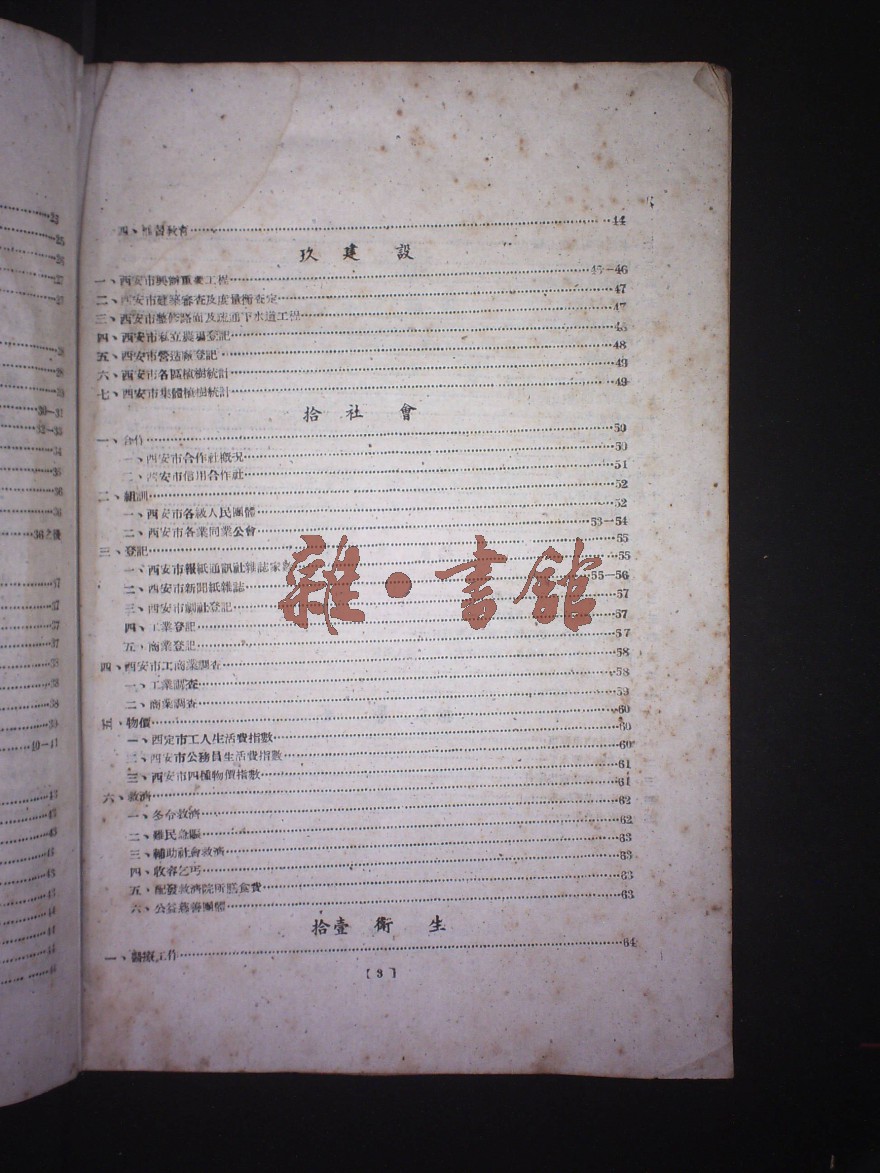 23
25
26
27
27
28
28
29
30—31
32—33
34
35
36
36
36之後
37
37
37
37
38
38
38
39
40—41
43
43
43
43
44
44
44
四、補習教育……44
玖 建 設
一、西安市興辦重要工程……45—46
二、西安市建築審查及度量衡查定……47
三、西安市整修路面及疏通下水道工程……47
四、西安市私立農場登記……48
五、西安市營造廠登記……48
六、西安市各區植樹統計……49
七、西安市集體植樹統計……49
拾 社 會
一、合作……50
一、西安市合作社概況……50
二、西安市信用合作社……51
二、組訓……52
一、西安市各級人民團體……52
二、西安市各業同業公會……53—54
三、登記……55
一、西安市報紙通訊社雜誌家數……55
二、西安市新聞紙雜誌……55—56
三、西安市劇社登記……57
四、工業登記……57
五、商業登記……57
四、西安市工商業調查……58
一、工業調查……58
二、商業調查……59
五、物價……60
一、西定市工人生活費指數……60
二、西安市公務員生活費指數……60
三、西安市四種物價指數……61
六、救濟……61
一、冬令救濟……62
二、難民急賑……62
三、輔助社會救濟……63
四、收容乞丐……63
五、配發救濟院所膳食費……63
六、公益慈善團體……63
拾壹 衛 生
一、醫療工作……64
[3]
雜·書館